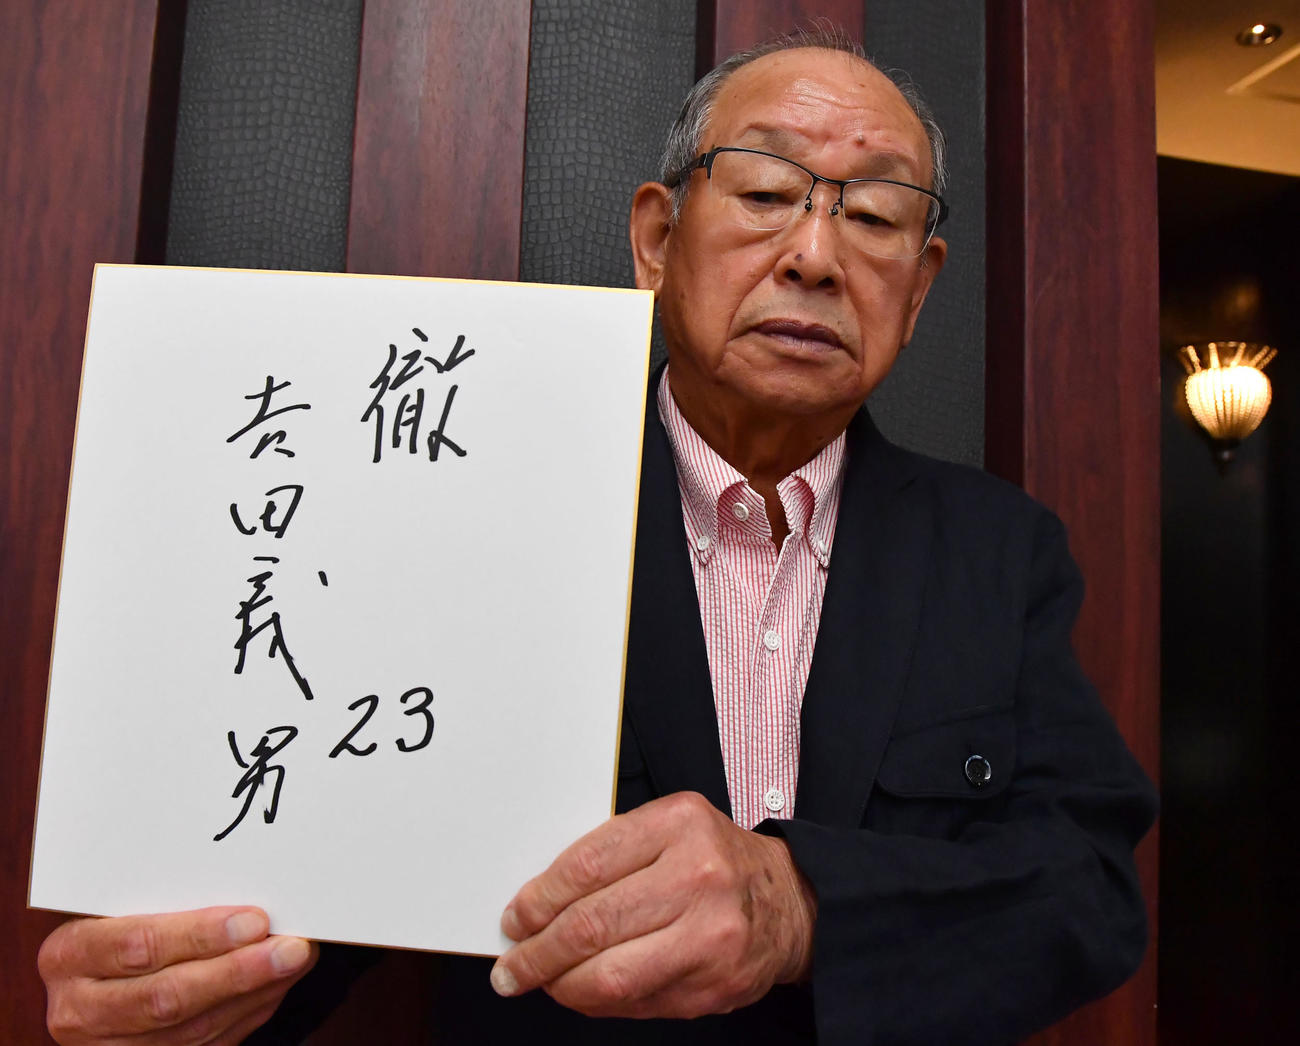 徹
吉田義男
23